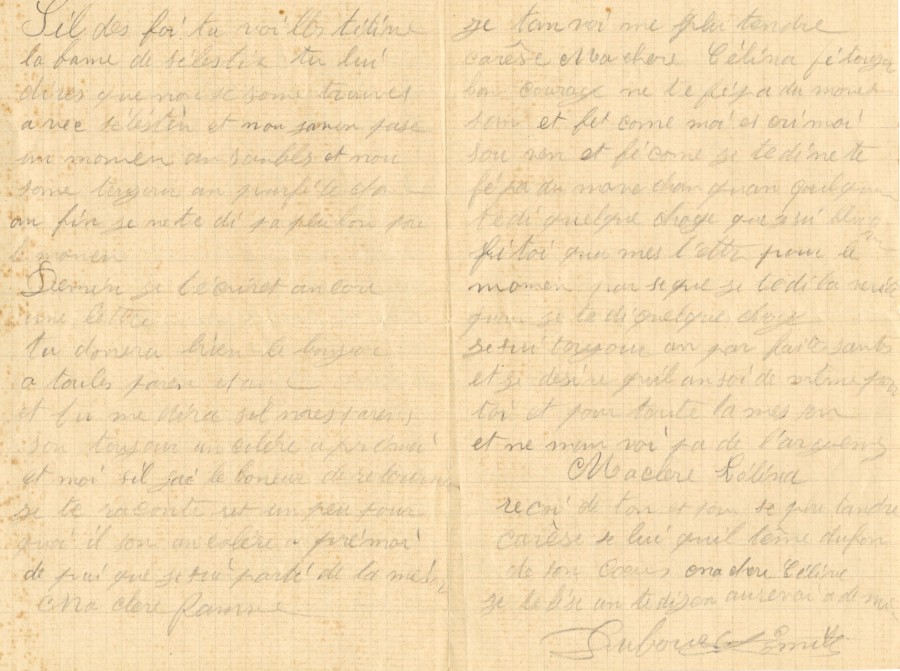 Sil des foi tu voi ttes titine
la bame de sélestin tu lui
dires que nou se some trouvés
avec sélestin et nou savon pase
un momen an sanbles et nou
some toujour an parfète
an fin je ne te di pa plu lon por
le momen
Demin je t'écriret ancore
une lettre
tu donera bien le bonjour
a toules paren
et tu me dira sil nores paren
son toujour an colère apré moi
et moi sil jaé le boneur de retourné
je te raconte ret un peu pour
quoi il son an colère a pré moi
de pui que je sui parti de la
Ma chere famme
je tanvoi me plu tendre
carèse Ma chere Célina fé toujour
bon courage ne te fé pa du move
san et fet come moi et oci moi
sou ven et fé come je te di ne te
fé pa du move chan quan quelqun
te di quelque choze que sui
qui toi que mes l'ettre pour le
momen par se que je te di la verité
quan je te di quelque choze
je sui toujour an par faite santé
et je desire qu'il an soi de même pour
toi et pour toute la mes on
et ne man voi pa de l'argent
Ma chere Célina
recoi de ton et pou se plu tandre
carèse se lui qu'il t'ème du fon
de son coeur ma chere Céline
je te lése an te dizan aurevoi a de min
Dubourg Emile